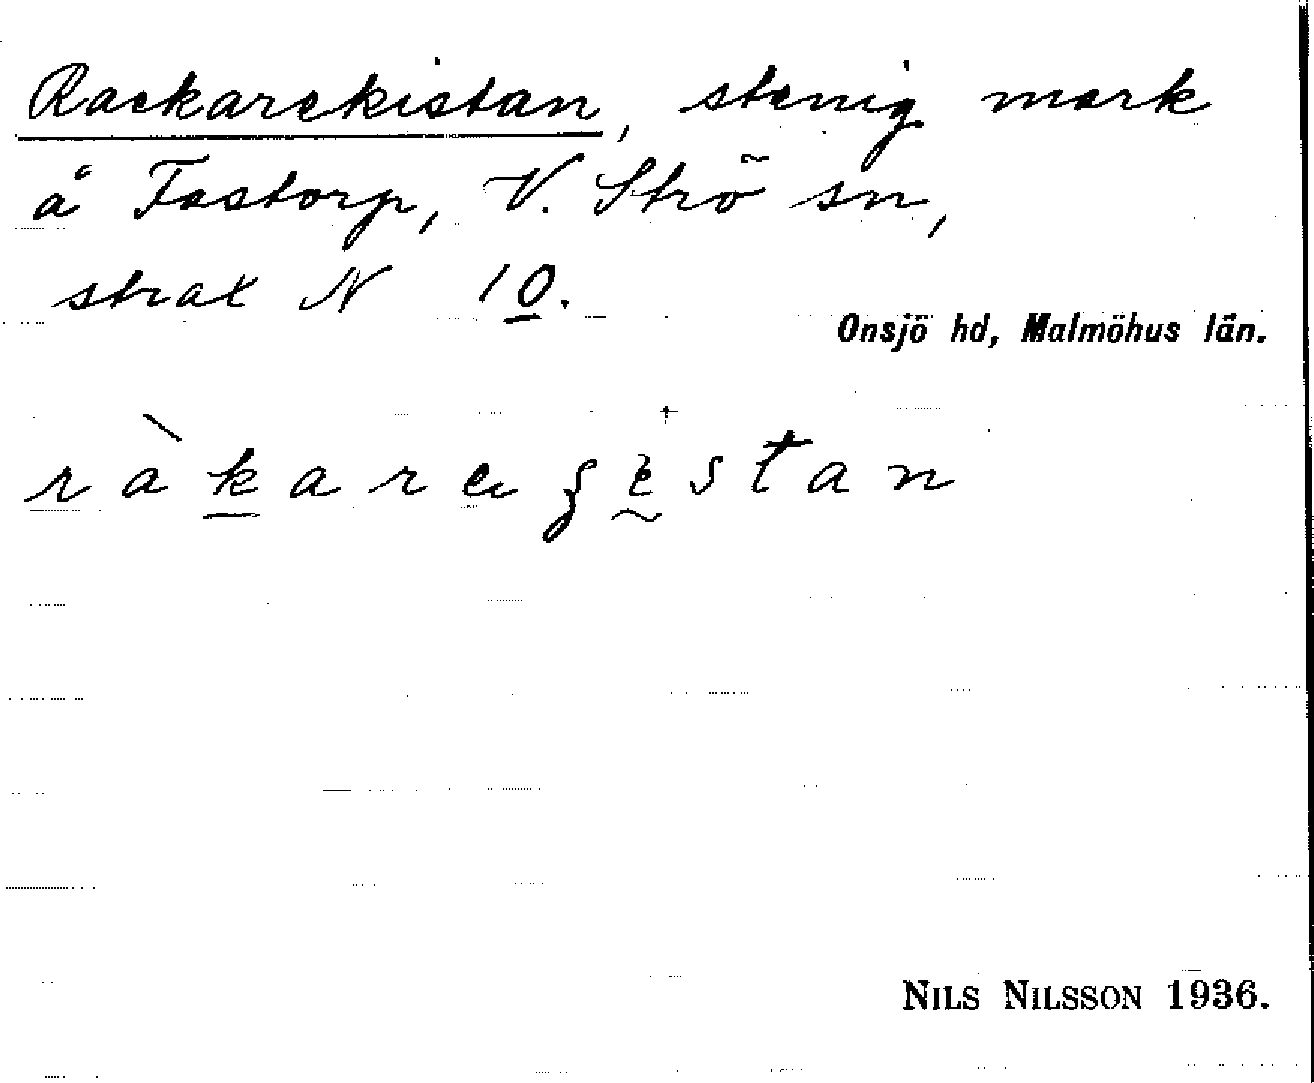 Rackarekistan, stenig mark
å Fastorp, V. Strö sn,
strax N 10.
Onsjö hd, Malmöhus län.
NILS NILSSON 1936.